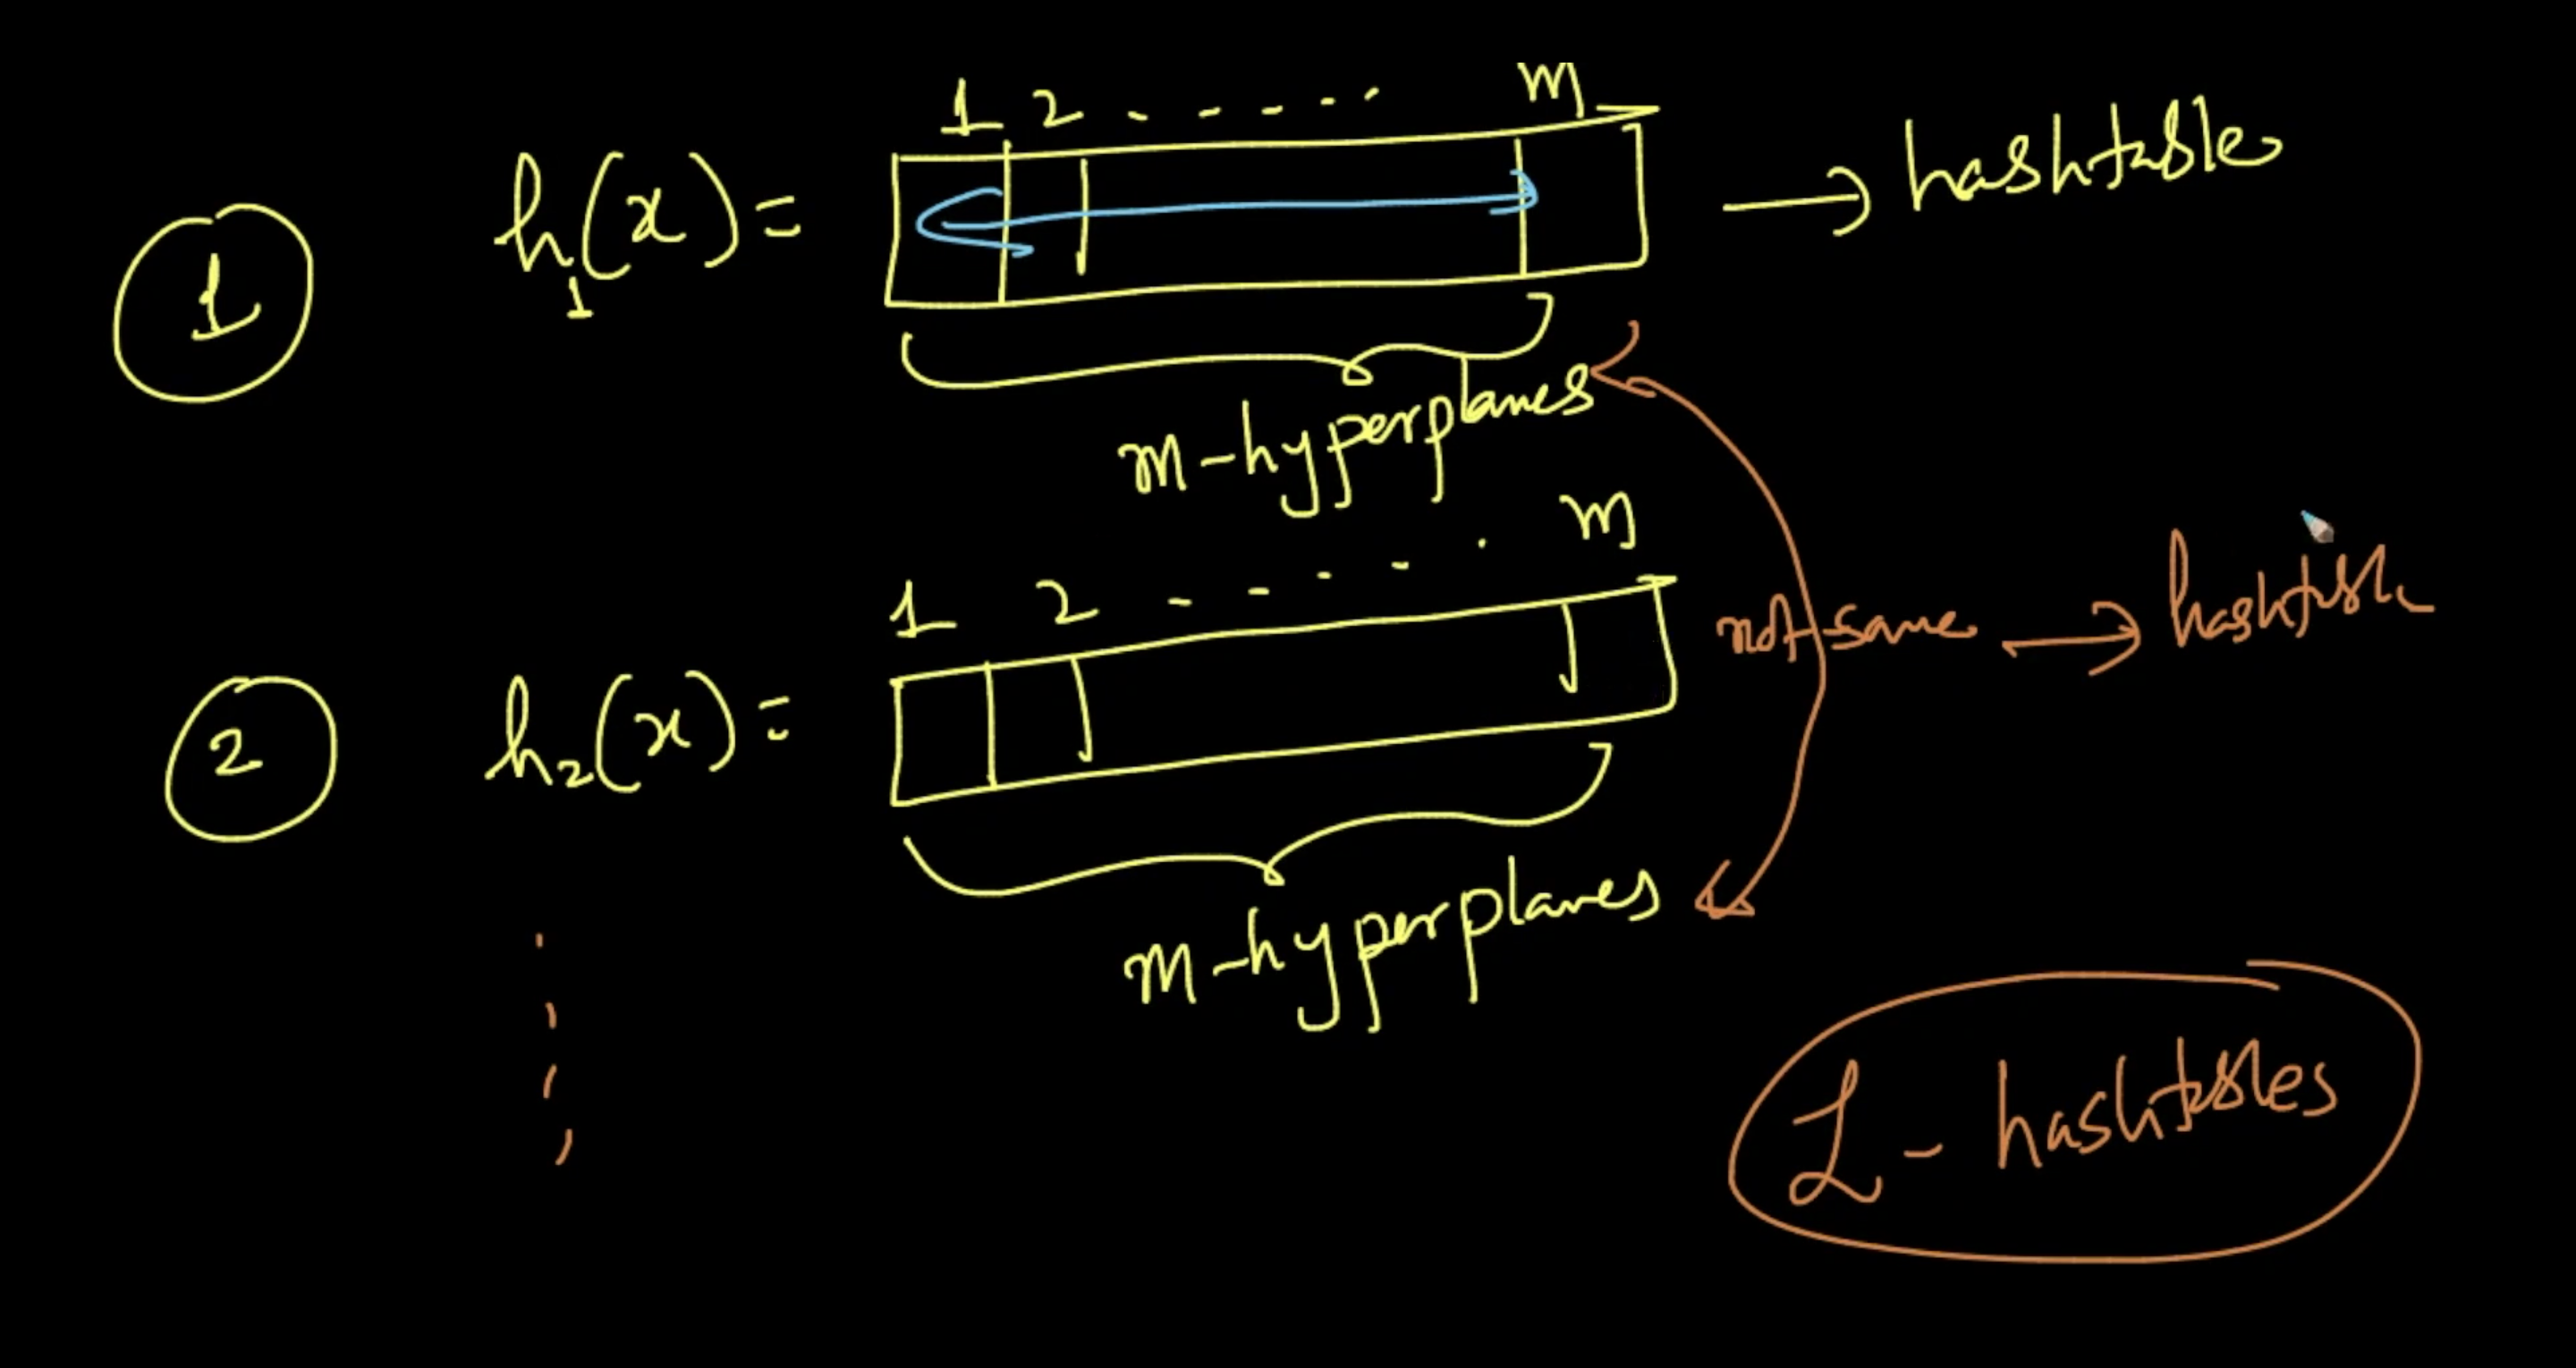 1 2 - - - - - m
1 h₁(x) = → hashtable
m-hyperplanes
1 2 - - - - . m
not same → hashtable
2 h₂(x) =
m-hyperplanes
L - hashtables